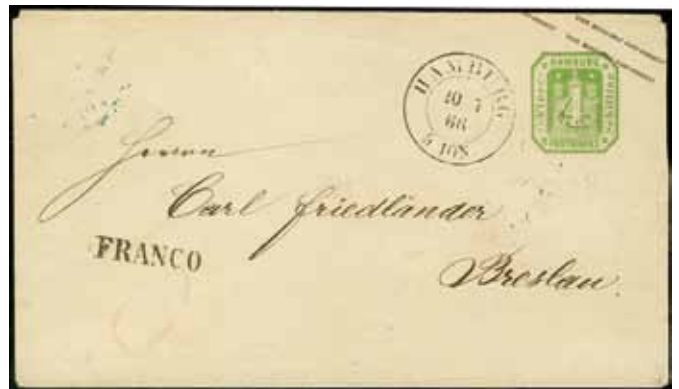 HAMBURG
10 7
66
HAMBURG
4
Schilling
POSTMARKE
Herrn
Carl Friedländer
FRANCO
Breslau.